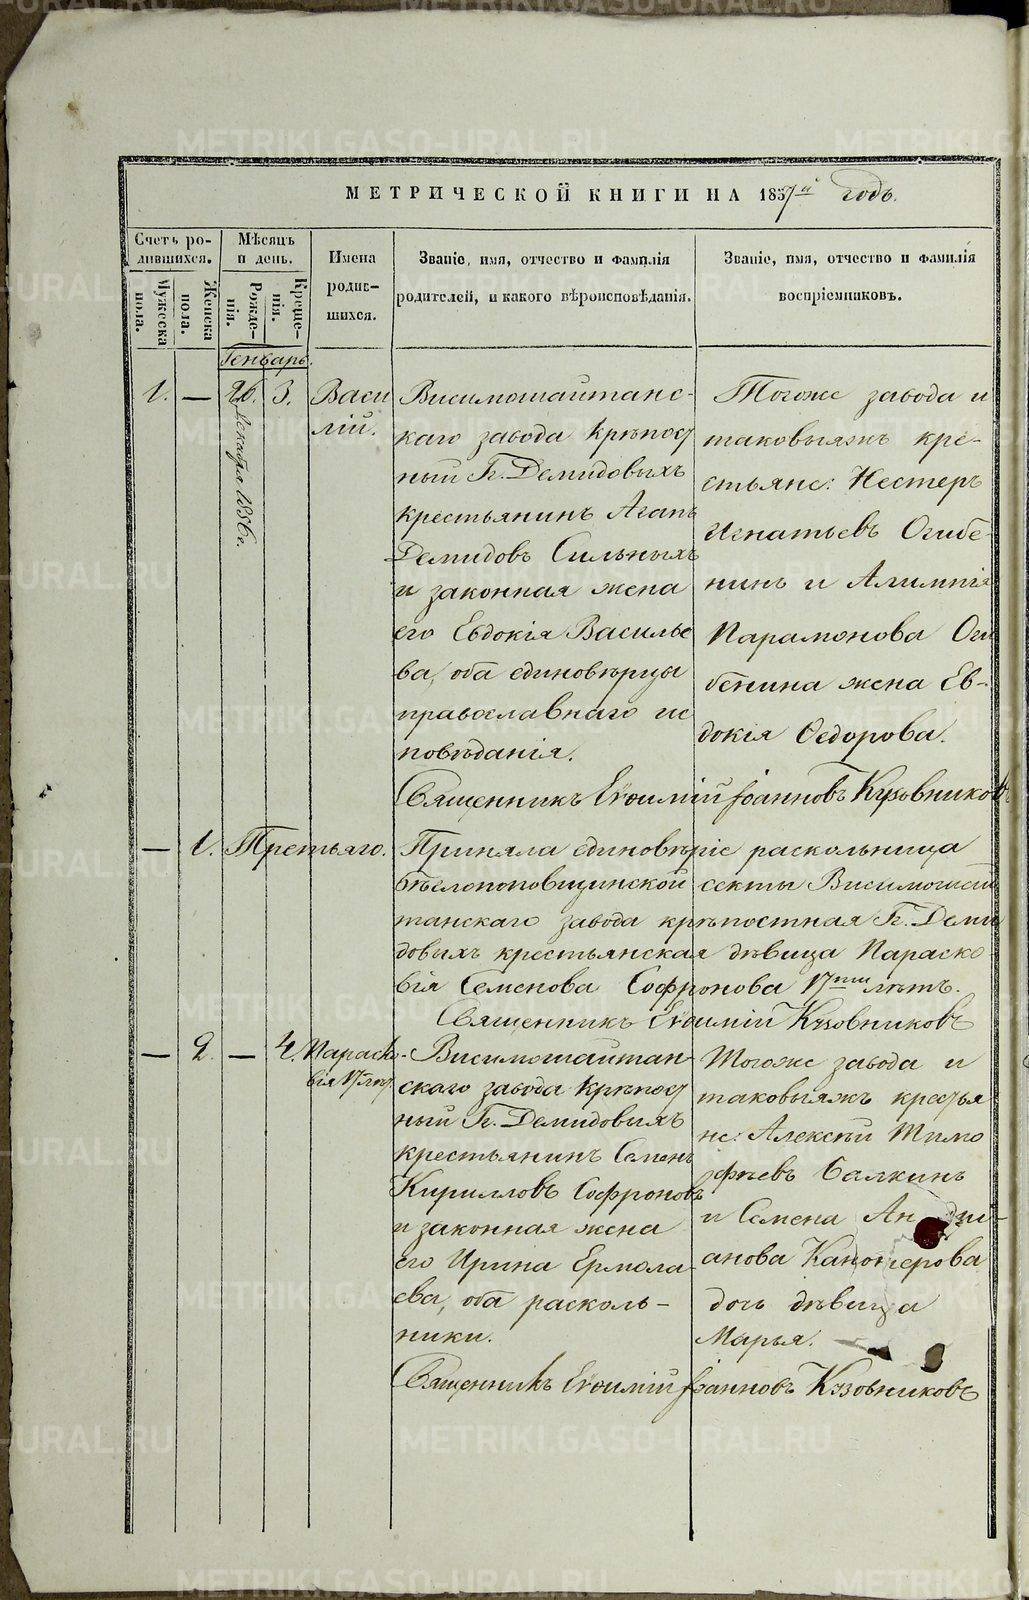 МЕТРИЧЕСКОЙ КНИГИ НА 1857й годъ.
Счетъ ро-
дившихся.
Мѣсяцъ
и день.
Имена
родив-
шихся.
Званіе, имя, отчество и фамилія
родителей, и какого вѣроисповѣданія.
Званіе, имя, отчество и фамилія
воспріемниковъ.
Мужеска
пола.
Женска
пола.
Рожде-
нія.
Креще-
нія.
Генварь.
1.
—
26.
Декабря 1856 г.
3.
Васи
лій.
Висимошайтанс-
каго завода крѣпост
ный Гг. Демидовыхъ
крестьянинъ Агапъ
Демидовъ Сильныхъ
и законная жена
его Евдокія Василье
ва, оба единовѣрцы
православнаго ис
повѣданія.
Тогоже завода и
таковыяжъ кре-
стьяне: Нестеръ
Игнатьевъ Огибе-
нинъ и Алимпія
Парамонова Оги
бенина жена Ев-
докія Ѳедорова.
Священникъ Евѳимій Іоанновъ Кузовниковъ
—
1.
Третьяго.
Приняла единовѣріе раскольница
бѣглопоповщинской секты Висимошай
танскаго завода крѣпостная Гг. Деми
довыхъ крестьянская дѣвица Параско-
вія Семенова Софронова 17ти лѣтъ.
Священникъ Евѳимій Кузовниковъ
—
2.
—
4.
Параско-
вія 17 лѣт.
Висимошайтан-
скаго завода крѣпост
ный Гг. Демидовыхъ
крестьянинъ Семенъ
Кирилловъ Софроновъ
и законная жена
его Ирина Ермола-
ева, оба расколь-
ники.
Тогоже завода и
таковыяжъ крестья
не: Алексѣй Тимо
фѣевъ Балкинъ
и Семена Андри-
анова Канонерова
дочь дѣвица
Марья.
Священникъ Евѳимій Іоанновъ Кузовниковъ
METRIKI.GASO-URAL.RU